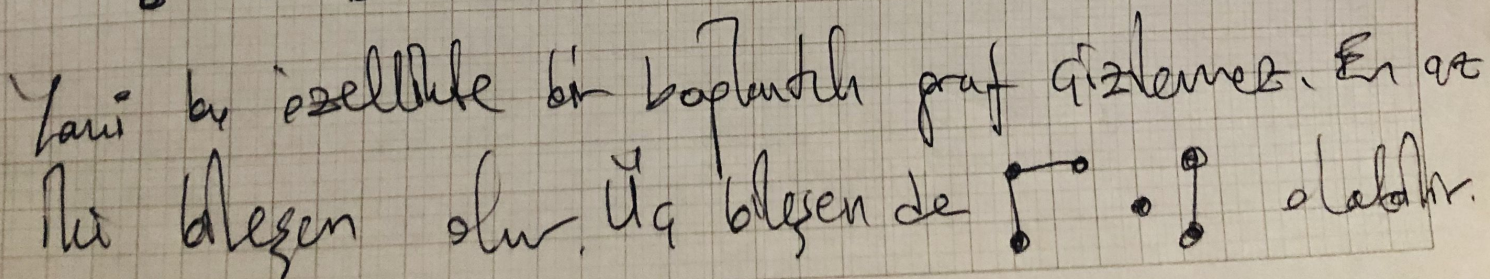 Yani bu özellikte bir bağlantılı graf çizilemez. En az
iki bileşen olur. Üç bileşen de olabilir.